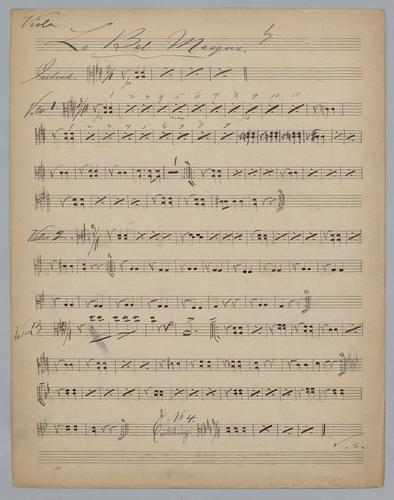 Viola
Le Bel Masque. by
Introd.
Valse 1 1 2 3 4 5 6 7 8 9 10 11
1 2 3 4 5 6 7 8 9
Valse 2.
Valse 3
No 4.
V. S.